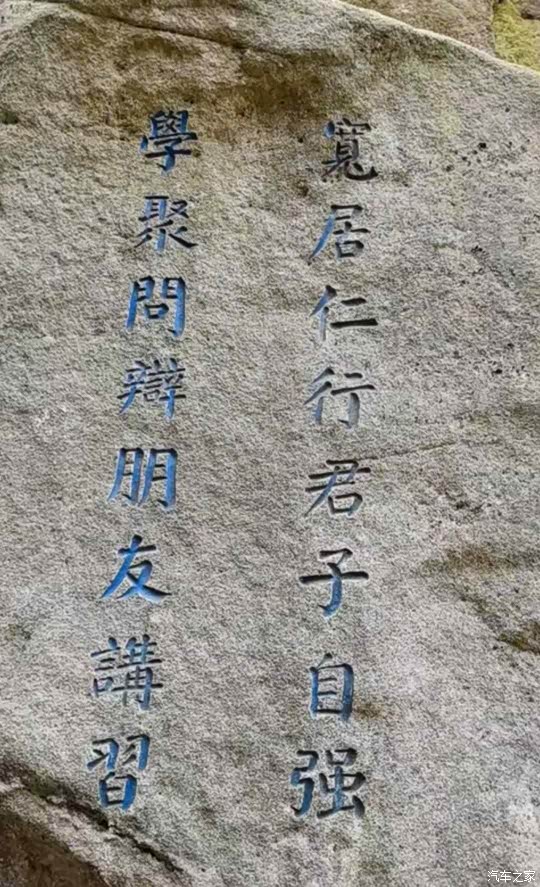 寬居仁行君子自强
學聚問辯朋友講習
汽车之家